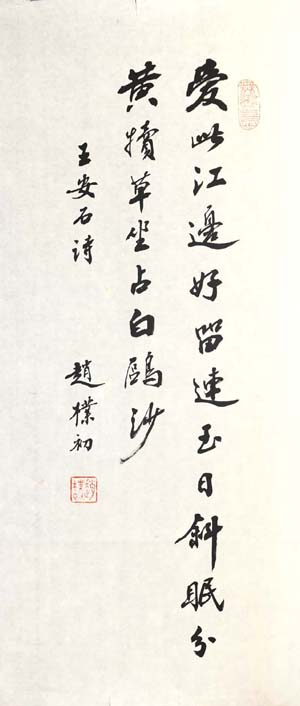 愛此江邊好留連至日斜眠分
黃犢草坐占白鷗沙
王安石詩
趙樸初